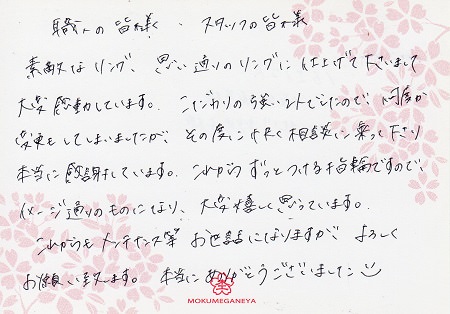 職人の皆様、スタッフの皆様
素敵なリング、思い通りのリングに仕上げて下さいまして
大変感動しています。こだわりの強い2人でしたので、何度か
変更をしてしまいましたが、その度に快く相談に乗って下さり
本当に感謝しています。これからずっとつける指輪ですので、
イメージ通りのものになり、大変嬉しく思っています。
これからもメンテナンス等お世話になりますが、よろしく
お願い致します。本当にありがとうございました
MOKUMEGANEYA